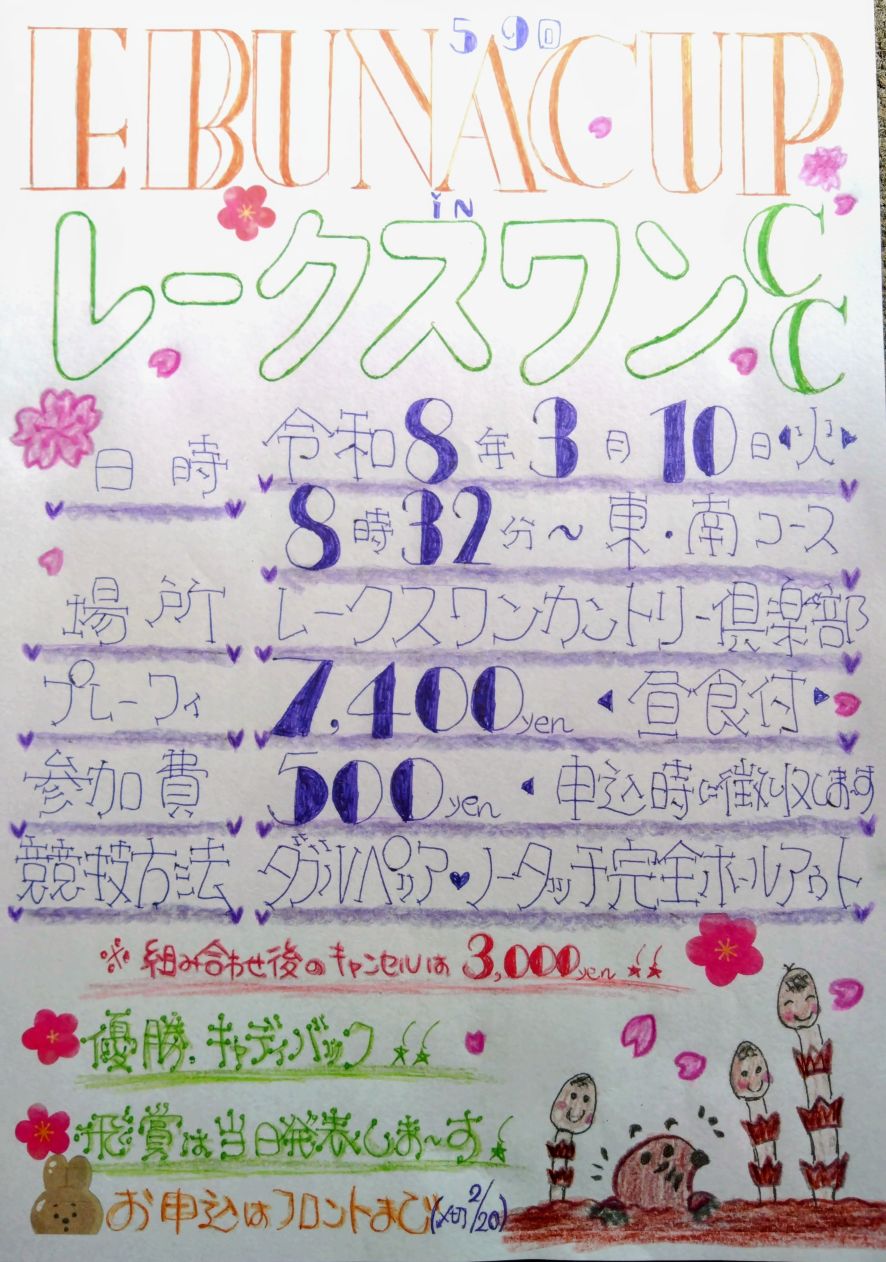 59回
EBUNA CUP
IN
レークスワンCC
日時 令和8年3月10日(火)
8時32分～東・南コース
場所 レークスワンカントリー倶楽部
プレーフィ 7,400yen (昼食付)
参加費 500yen (申込時に徴収します
競技方法 ダブルペリア♥ノータッチ完全ホールアウト
※組み合わせ後のキャンセルは3,000yen!!
優勝、キャディバック!!
飛賞は当日発表しま〜す!
お申込はフロントまで(〆切2/20)